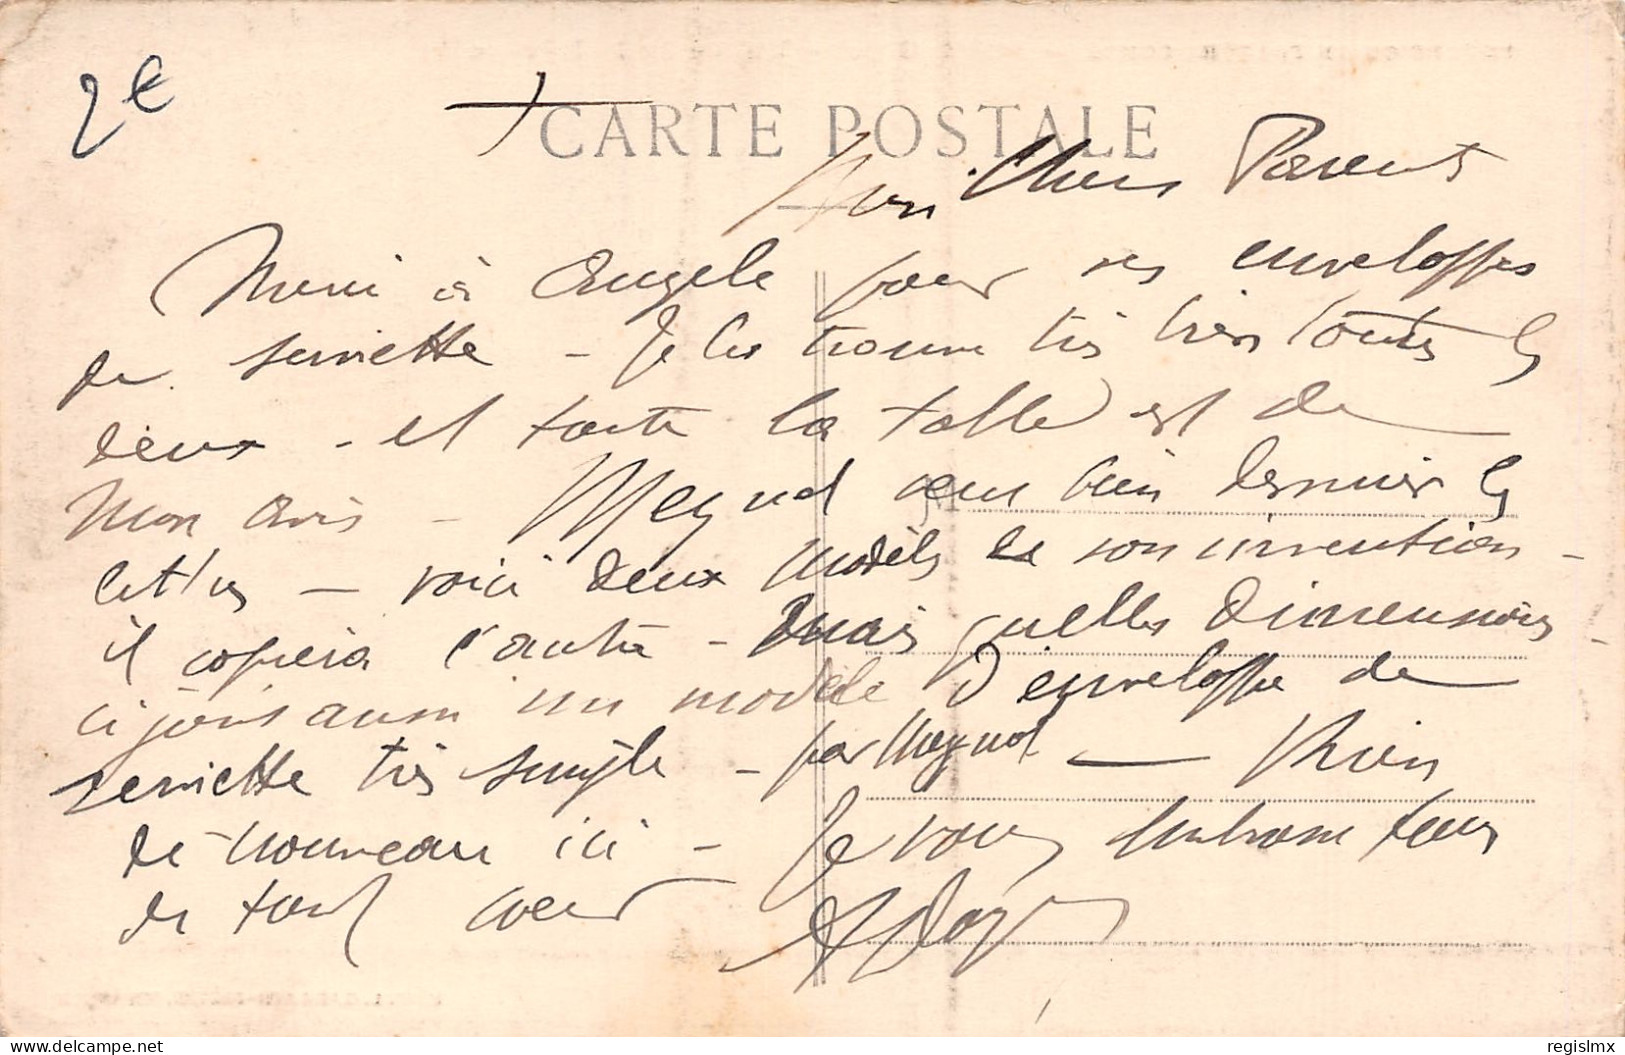 2€
CARTE POSTALE
Chers Parents
Merci à Angele pour ses enveloppes
de serviette - Je les trouve très bien toutes les
deux - et toute la table est de
mon avis - Meynod peut bien dessiner les
lettres - voici deux modèles de son invention -
il copiera l'autre - Mais quelles dimensions -
ci joins aussi un modèle d'enveloppe de
serviette très simple - par Meynod — Rien
de nouveau ici - Je vous embrasse tous
de tout coeur
regislmx
delcampe.net